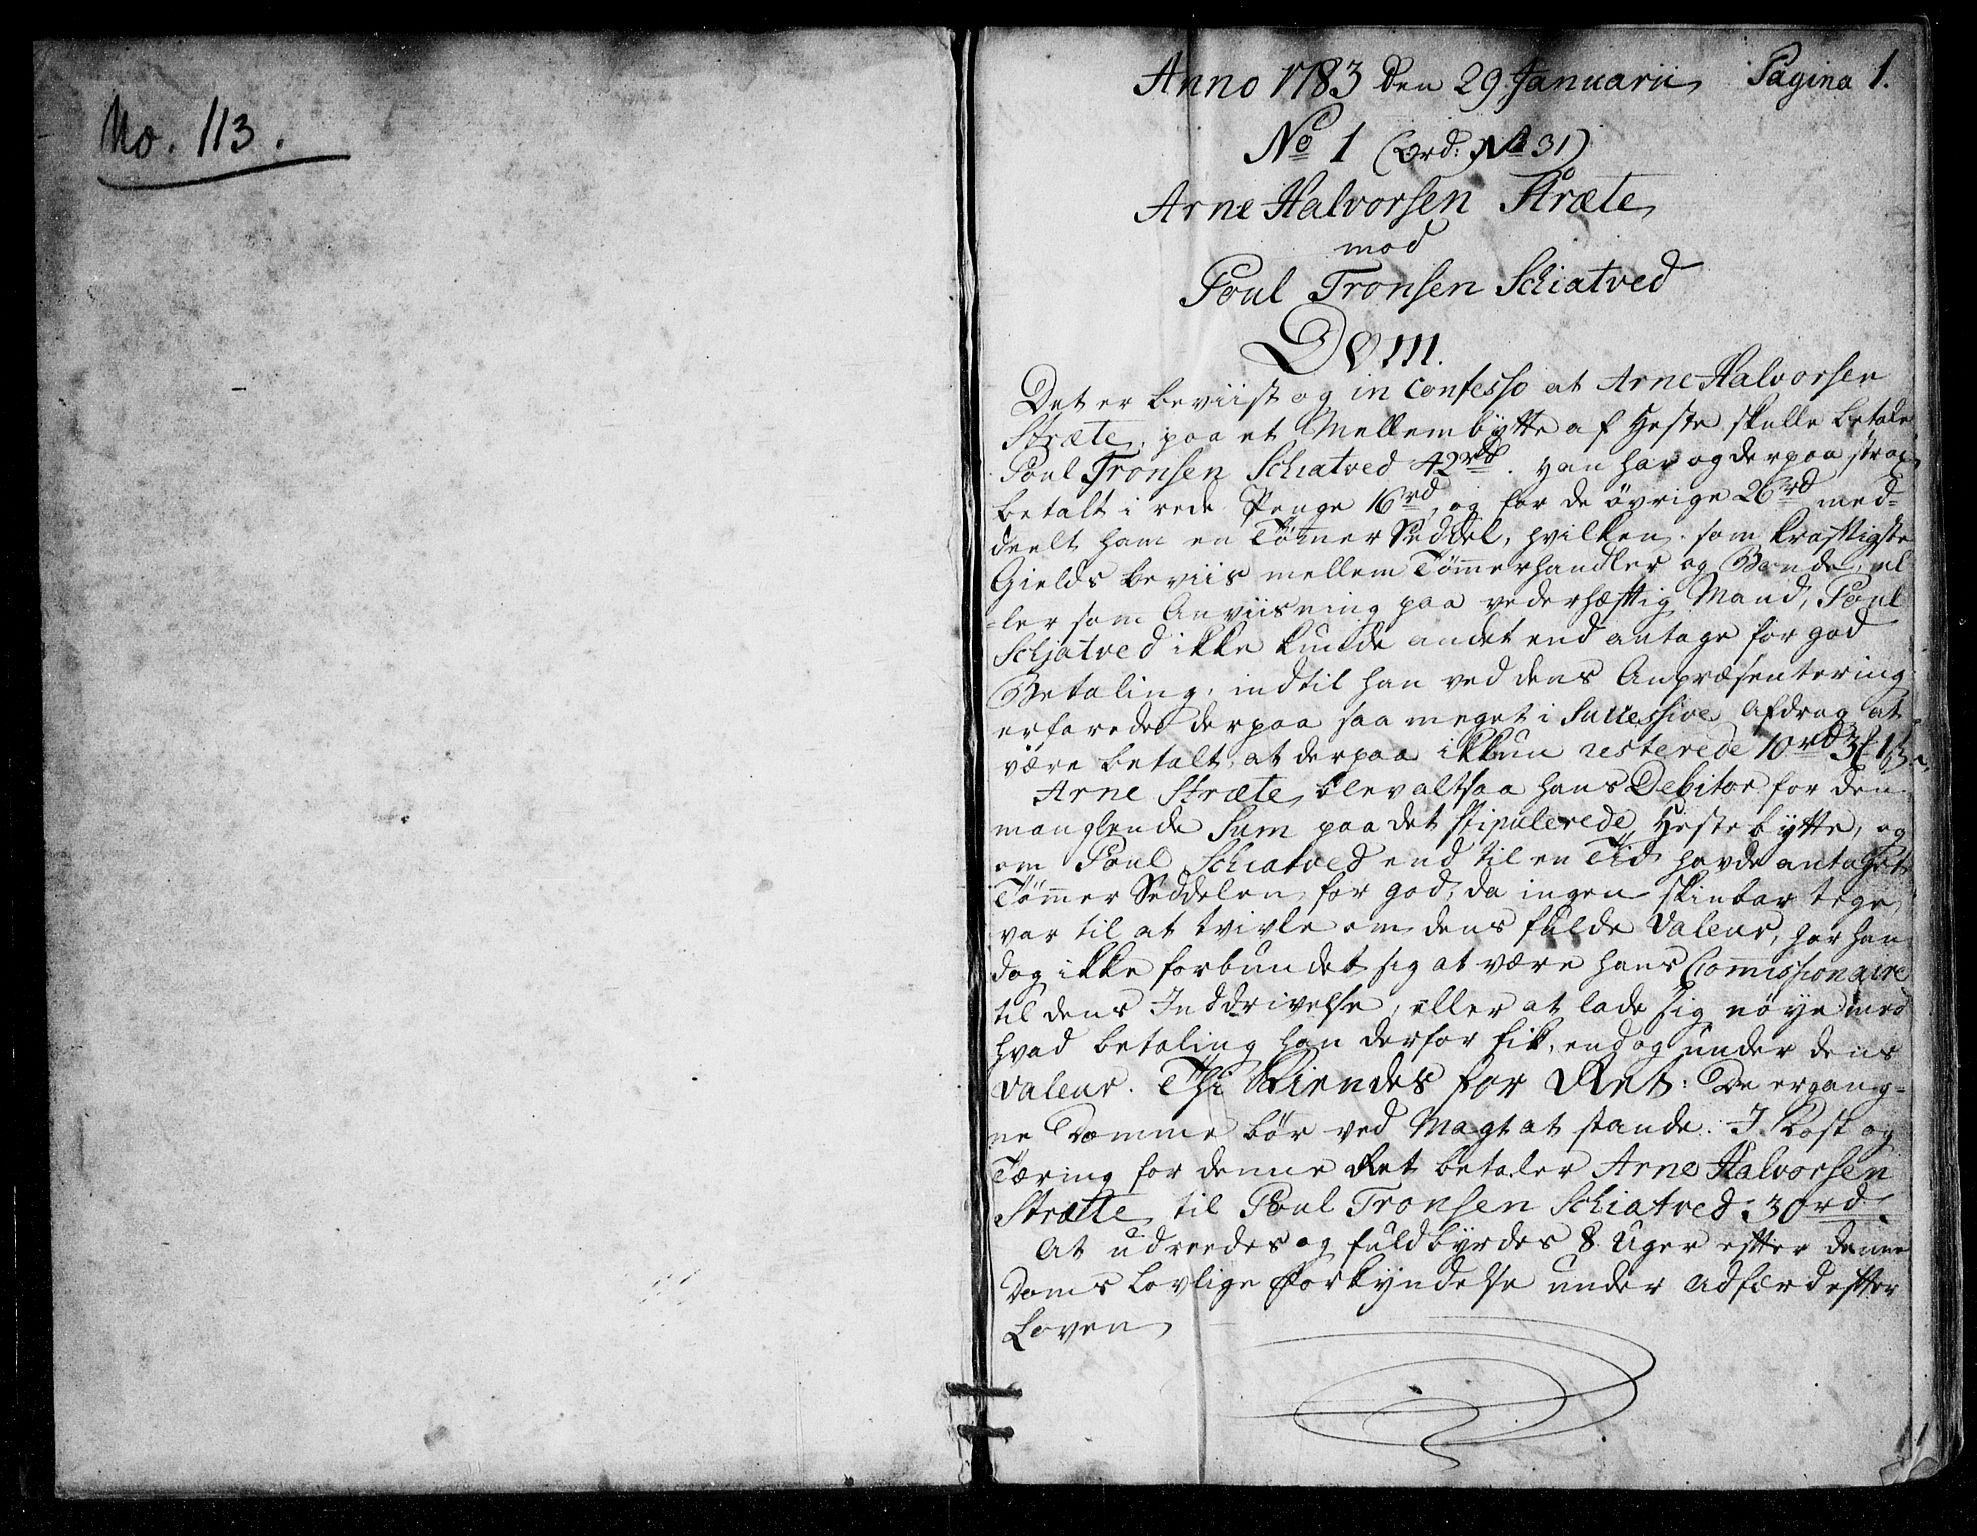 No. 113.
Anno 1783 den 29. Januarii Pagina 1.
No 1 (Ord: No 31)
Arne Halvorsen Stræte
mod
Poul Tronsen Schiatved
Dom.
Det er beviist og in Confesso at Arne Halvorsen
Stræte, paa et Mellembytte af Heste skulle betale
Poul Tronsen Schiatved 42rd. Han har og derpaa strax
betalt i rede Penge 16rd, og for de övrige 26rd med-
deelt ham en Tömer Seddel, hvilken som kraftigste
Gields beviis mellem Tömerhandler og Bonde, el
-ler som Anviisning paa vederhæftig Mand, Poul
Schjatved ikke kunde andet end antage for god
Betaling, indtil han ved dens Anpræsentering
erfarede derpaa saa meget i Successive Afdrag at
være betalt, at derpaa ikkun resterede 10rd
Arne Stræte blev altsaa hans Debitor for den
manglende Sum paa det stipulerede Hestebytte, og
om Poul Schiatved end til en Tid havde antaget
Tömer Seddelen for god, da ingen skinbar
var til at tvivle om dens fulde Valeur, har han
dog ikke forbundet sig at være hans Commissionaire
til dens Inddrivelse, eller at lade sig nöye med
hvad betaling han derfor fik, endog under dens
Valeur. Thi Kiendes for Ret: De ergang-
ne Domme bör ved Magt at stande. I Kost og
Tæring for denne Ret betaler Arne Halvorsen
Stræte til Poul Tronsen Schiatved 30rd.
At udreedes og fuldbyrdes 8 Uger efter denne
Doms lovlige Forkyndelse under Adfærd efter
Loven